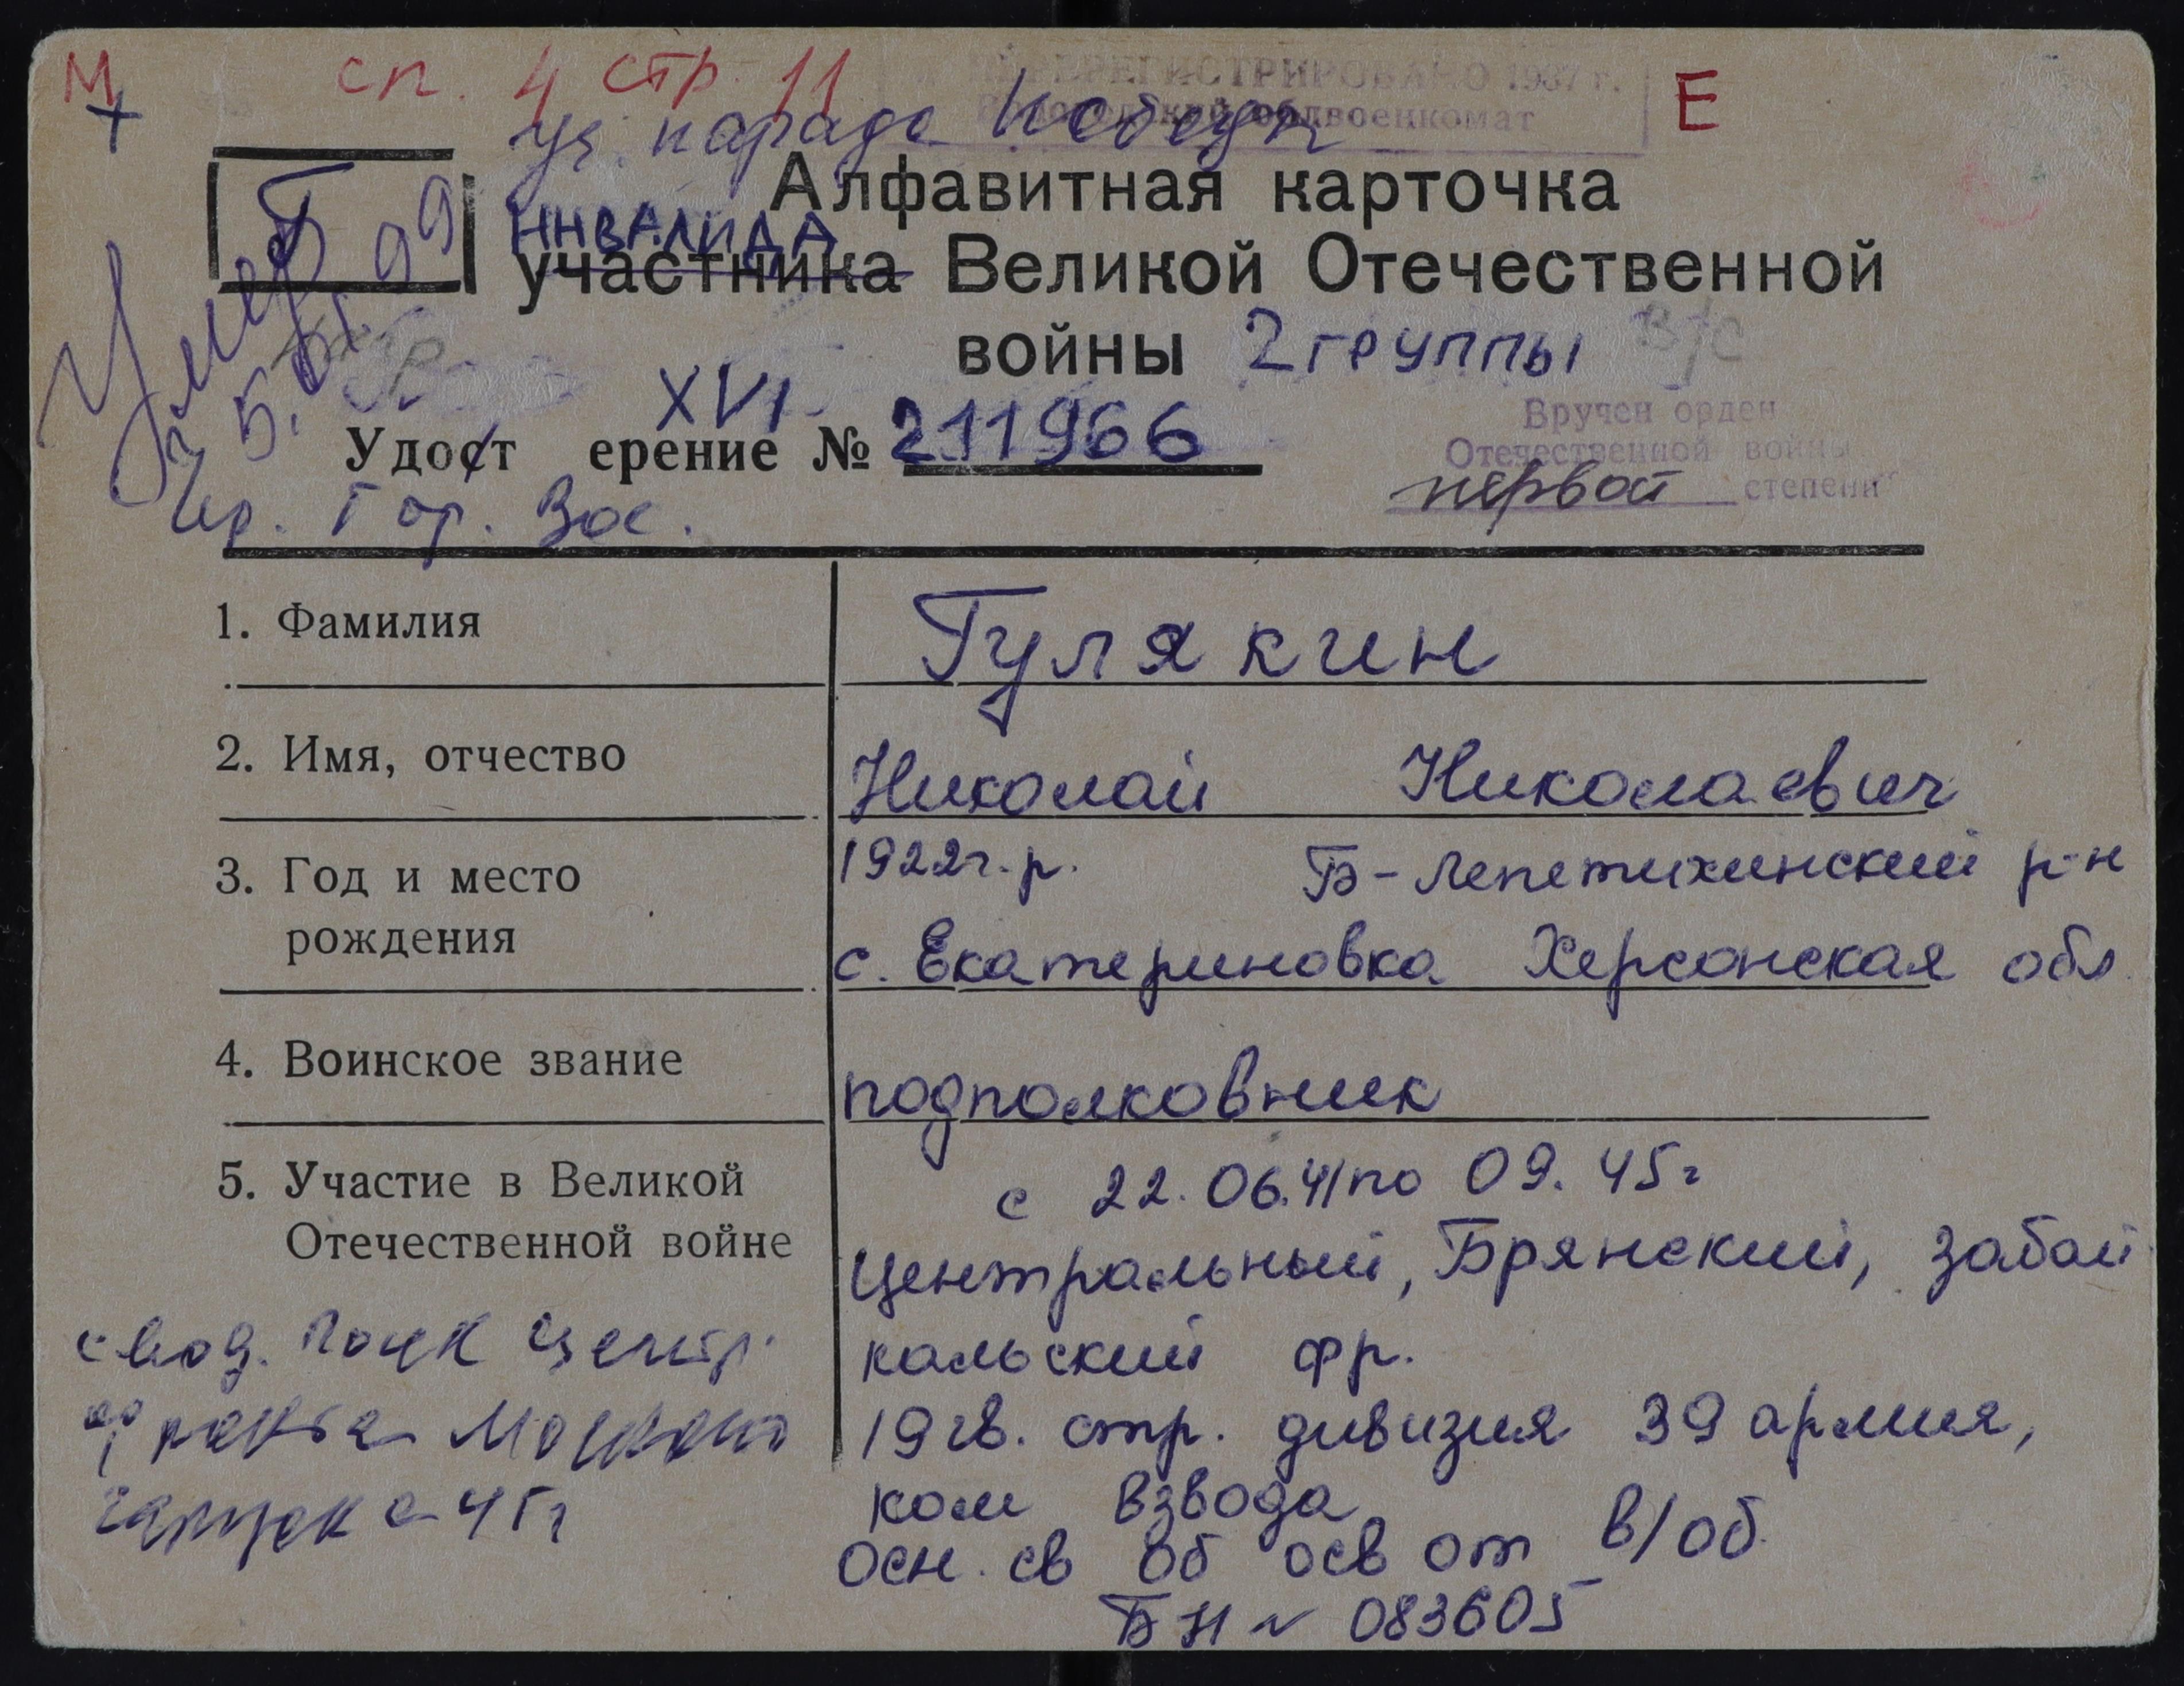 М сп. 4 стр. 11 Е
ПЕРЕРЕГИСТРИРОВАНО 1987 г.
облвоенкомат
уч. парада Победы
Г
Алфавитная карточка
ИНВАЛИДА
участника Великой Отечественной
войны 2 группы в/с
Умер
5.01.99
XVI
Удост ерение № 211966
Вручен орден
Отечественной войны
первой степени
Гор. Вое.
1. Фамилия Гулякин
2. Имя, отчество Николай Николаевич
3. Год и место 1922г.р. Б-Лепетихинский р-н
рождения с. Екатериновка Херсонская обл
4. Воинское звание подполковник
5. Участие в Великой с 22.06.41 по 09.45г
Отечественной войне Центральный, Брянский, Забай
кальский фр.
19 гв. стр. дивизия 39 армия,
ком взвода
осн. св об осв от в/об.
БН № 083605
свод. полк центр.
фронта
45г